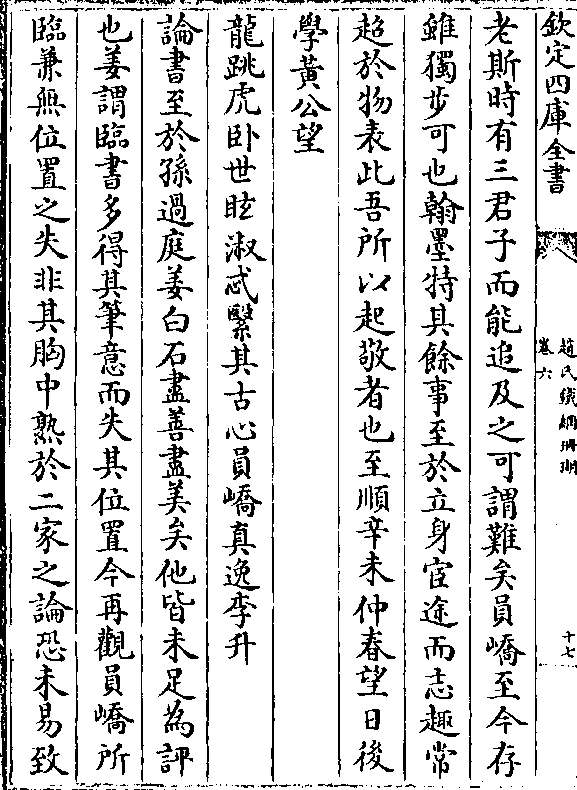 欽定四庫全書
趙氏鐵網珊瑚
卷六
十七
老斯時有三君子而能追及之可謂難矣員嶠至今存
雖獨步可也翰墨特其餘事至於立身宦途而志趣常
超於物表此吾所以起敬者也至順辛未仲春望日後
學黃公望
龍跳虎卧世眩淑忒繄其古心員嶠真逸李升
論書至於孫過庭姜白石盡善盡美矣他皆未足為評
也姜謂臨書多得其筆意而失其位置今再觀員嶠所
臨兼無位置之失非其胸中熟於二家之論恐未易致